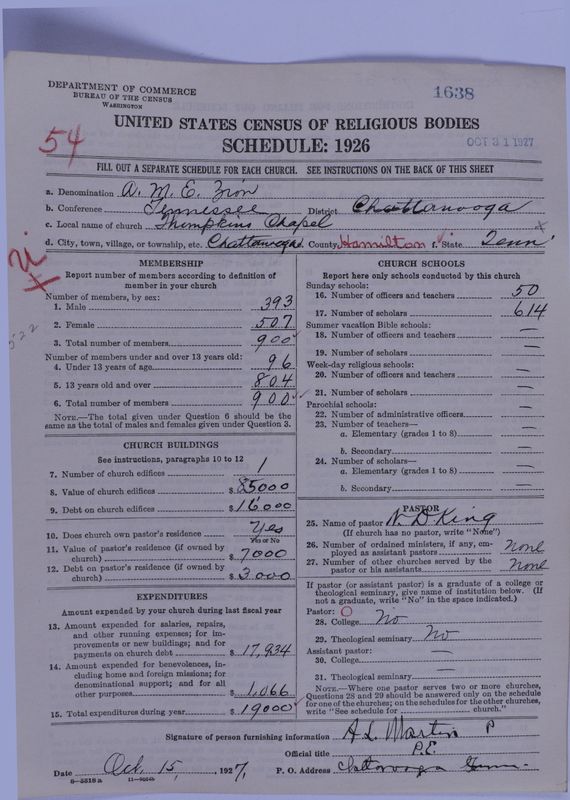 DEPARTMENT OF COMMERCE
BUREAU OF THE CENSUS
WASHINGTON
1638
UNITED STATES CENSUS OF RELIGIOUS BODIES
54
SCHEDULE: 1926
OCT 31 1927
FILL OUT A SEPARATE SCHEDULE FOR EACH CHURCH. SEE INSTRUCTIONS ON THE BACK OF THIS SHEET
a. Denomination A. M. E. Zion
b. Conference Tennessee District Chattanooga
c. Local name of church Thompkins Chapel
d. City, town, village, or township, etc. Chattanooga County Hamilton f. State Tenn
MEMBERSHIP
Report number of members according to definition of
member in your church
Number of members, by sex:
1. Male 393
2. Female 507
3. Total number of members 900
Number of members under and over 13 years old:
4. Under 13 years of age 96
5. 13 years old and over 804
6. Total number of members 900
NOTE.—The total given under Question 6 should be the
same as the total of males and females given under Question 3.
CHURCH BUILDINGS
See instructions, paragraphs 10 to 12
7. Number of church edifices 1
8. Value of church edifices $ 85000
9. Debt on church edifices $ 16000
10. Does church own pastor's residence Yes
Yes or No
11. Value of pastor's residence (if owned by
church) $ 7000
12. Debt on pastor's residence (if owned by
church) $ 3.000
EXPENDITURES
Amount expended by your church during last fiscal year
13. Amount expended for salaries, repairs,
and other running expenses; for im-
provements or new buildings; and for
payments on church debt $ 17,934
14. Amount expended for benevolences, in-
cluding home and foreign missions; for
denominational support; and for all
other purposes $ 1,066
15. Total expenditures during year $ 19000
CHURCH SCHOOLS
Report here only schools conducted by this church
Sunday schools:
16. Number of officers and teachers 50
17. Number of scholars 614
Summer vacation Bible schools:
18. Number of officers and teachers —
19. Number of scholars —
Week-day religious schools:
20. Number of officers and teachers —
21. Number of scholars —
Parochial schools:
22. Number of administrative officers —
23. Number of teachers—
a. Elementary (grades 1 to 8) —
b. Secondary —
24. Number of scholars—
a. Elementary (grades 1 to 8) —
b. Secondary —
PASTOR
25. Name of pastor N. D King
(If church has no pastor, write "None")
26. Number of ordained ministers, if any, em-
ployed as assistant pastors none
27. Number of other churches served by the
pastor or his assistants none
If pastor (or assistant pastor) is a graduate of a college or
theological seminary, give name of institution below. (If
not a graduate, write "No" in the space indicated.)
Pastor:
28. College No
29. Theological seminary No
Assistant pastor: —
30. College —
31. Theological seminary —
NOTE.—Where one pastor serves two or more churches,
Questions 28 and 29 should be answered only on the schedule
for one of the churches; on the schedules for the other churches,
write "See schedule for church."
Signature of person furnishing information A L Martin P
Official title P.E.
Date Oct. 15, 1927, P. O. Address Chattanooga Tenn.